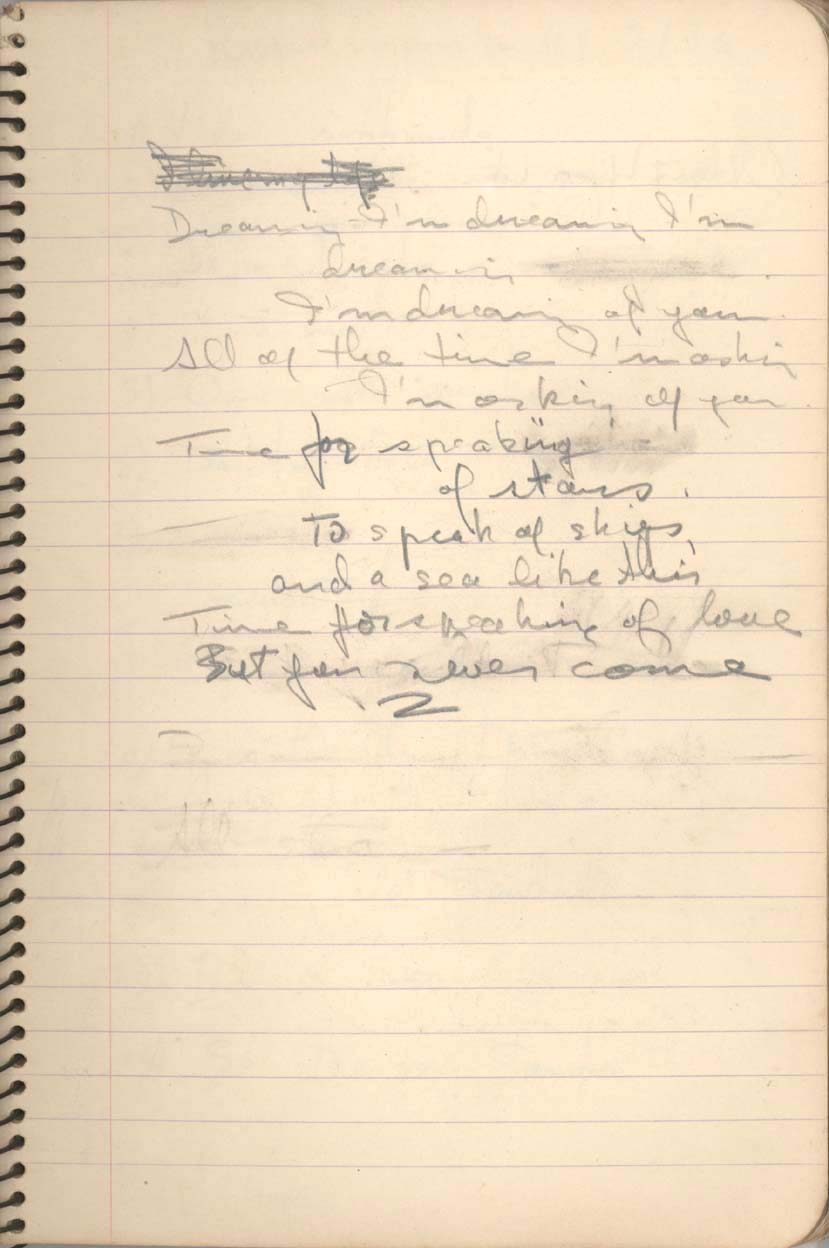 Dreaming I'm dreaming I'm
dreaming
I'm dreaming of you
All of the time I'm askin
I'm asking of you
Time for speaking
of stars.
To speak of skies
and a sea like this
Time for speaking of love
But you never come